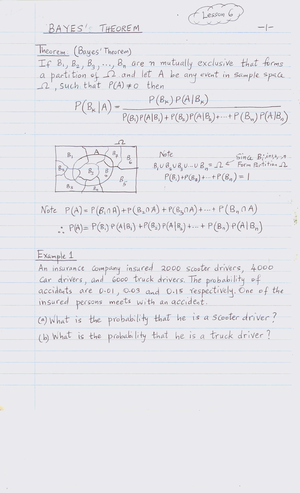 Lesson 6
BAYES' THEOREM
-1-
Theorem: (Bayes' Theorem)
If B₁, B₂, B₃, ..., Bₙ are n mutually exclusive that forms
a partition of Ω and let A be any event in sample space
Ω, such that P(A) ≠ 0 then
P(Bₖ|A) = P(Bₖ) P(A|Bₖ) / P(B₁) P(A|B₁) + P(B₂) P(A|B₂) + ... + P(Bₙ) P(A|Bₙ)
Ω
Note
Since Bᵢ
B₁ ∪ B₂ ∪ B₃ ∪ ... ∪ Bₙ = Ω
Form Partition Ω
P(B₁) + P(B₂) + ... + P(Bₙ) = 1
Note P(A) = P(B₁∩A) + P(B₂∩A) + P(B₃∩A) + ... + P(Bₙ∩A)
∴ P(A) = P(B₁) P(A|B₁) + P(B₂) P(A|B₂) + ... + P(Bₙ) P(A|Bₙ)
Example 1
An insurance company insured 2000 scooter drivers, 4000
car drivers, and 6000 truck drivers. The probability of
accidents are 0.01, 0.03 and 0.15 respectively. One of the
insured persons meets with an accident.
(a) What is the probability that he is a scooter driver?
(b) What is the probability that he is a truck driver?